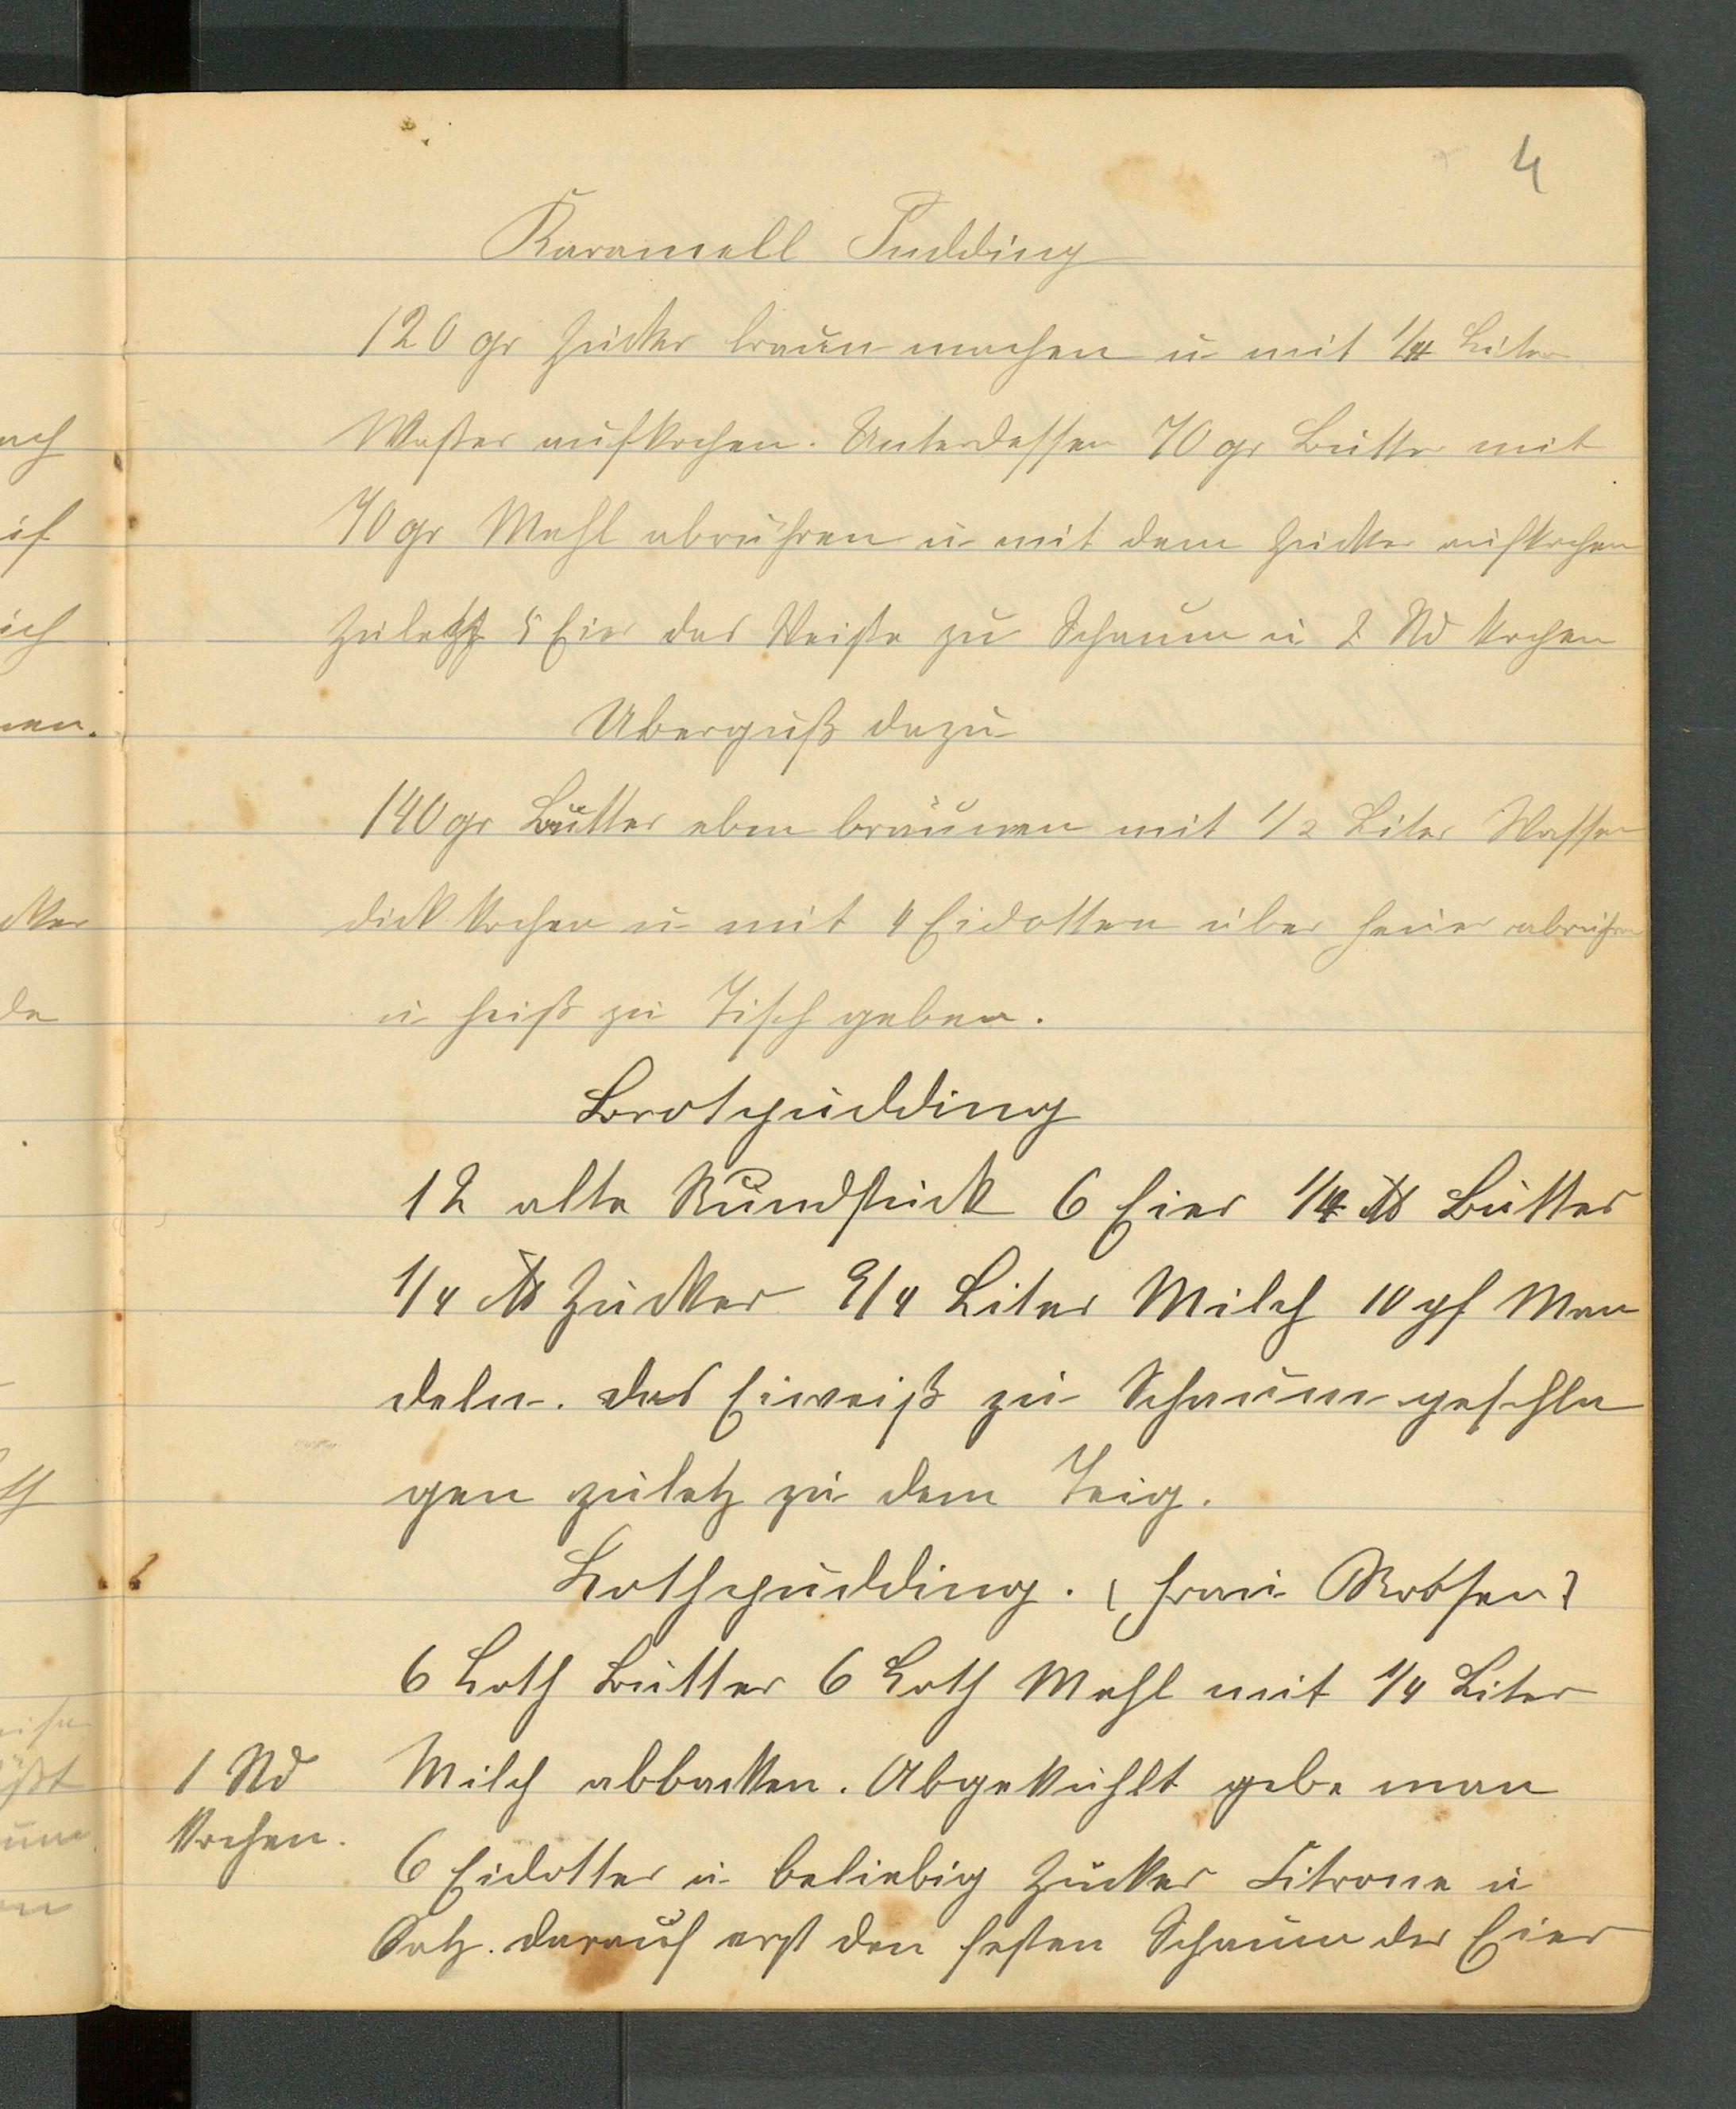 4
Karamell Pudding
120 gr Zucker braun machen u mit 1/4 Liter
Waßer aufkochen. Unterdessen 70 gr Butter mit
70 gr Mehl abrühren u mit dem Zucker aufkochen
zuletzt 5 Eier das Weiße zu Schaum u 2 Std kochen
Uberguß dazu
140 gr Butter eben bräunen mit 1/2 Liter Wasser
dick kochen u mit 4 Eidotten über Feuer abrühren
u heiß zu Tisch geben.
Brotpudding
12 alte Rundstück 6 Eier 1/4 ℔ Butter
1/4 ℔ Zucker 9/4 Liter Milch 10 pf Man
deln. das Eiweiß zu Schaum geschla
gen zuletz zu dem Teig.
Lothpudding. (Frau
6 Loth Butter 6 Loth Mehl mit 1/4 Liter
1 Std
kochen.
Milch abbacken. Abgekühlt gebe man
6 Eidotter u beliebig Zucker Citrone u
darauf erst den festen Schaum der Eier
ach
if
ich
nen.
cker
de
th